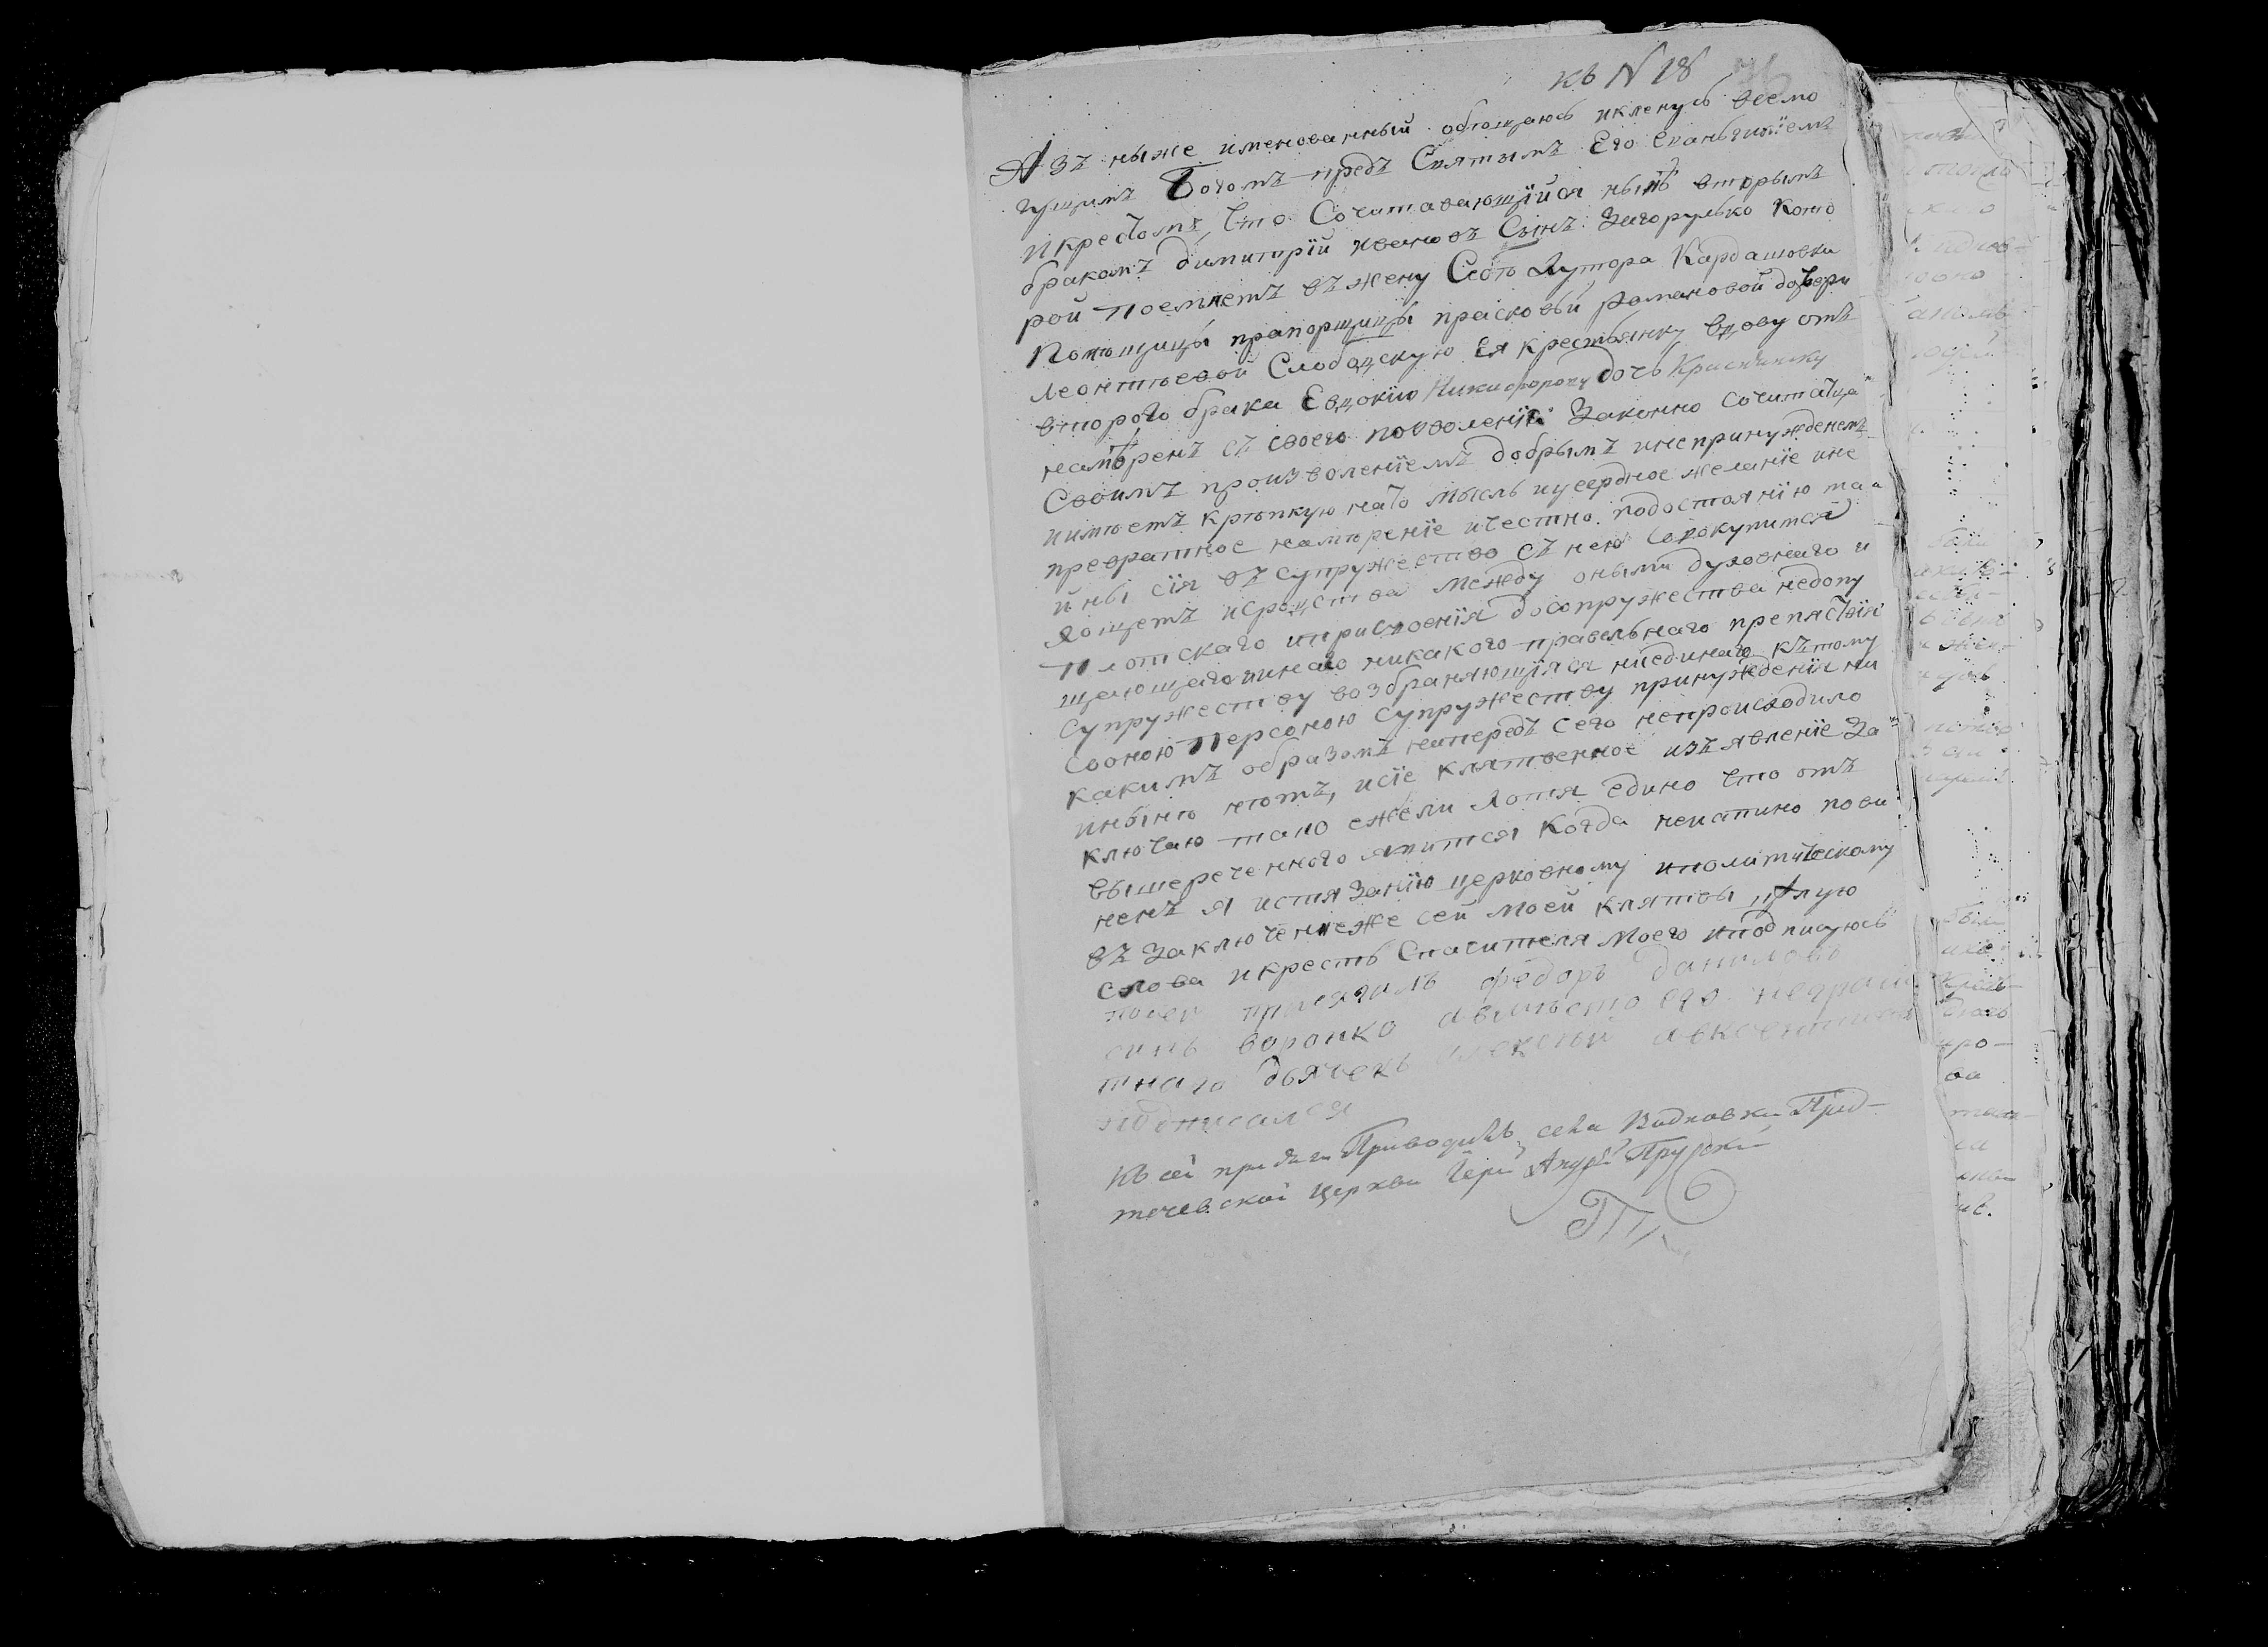 къ N 18
Азъ ныже именованный обѣщаюсь икленусь всемо
гущимъ Богомъ предъ Святымъ Его Еваньгилїемъ
икрестомъ, что Сочитавающїйся нынѣ вторымъ
бракомъ димитрїй ивановъ Сынъ Загорулько кото
рой поемлетъ въ жену Себѣ Хутора Кардашовки
Помѣщицы прапорщицы прасковьи романовой дочери
леонтьевой Слободскую Ея крестьянку вдову отъ
второго брака Евдокїю Никифорову дочь
намѣренъ съ своего позволенїя Законно сочитатца
Своимъ произволенїемъ добрымъ инепринужденемъ
иимѣетъ крѣпкую нато мысль иусердное желанїе ине
превратное намѣренїе ичестно подостоянїю таи
йны сїя въ супружество съ нею Совокупитися
хощетъ исродства между оными духовнаго и
плотскаго иприсвоенїя досопружества недопу
щающаго ииного никакого правельнаго препятствїя
супружеству возбраняющїяся ниединаго кътому
Соною Персоною Супружеству принужденїя ни
какимъ образомъ напередъ сего непроисходило
инынѣ нѣтъ, исїе клятвенное изъявленїе За
ключаю тако ежели хотя едино что отъ
вышереченного явитися когда неистино пови
ненъ я истязанїю церковному иполитическому
въ заключенїеже сей моей клятвы цѣлую
слова икрестъ Спасителя Моего иподписуюсь
посей присягилъ федоръ даниловъ
синъ воронко авместо его неграмо
тнаго дьячекъ алексѣй
подписался
Къ сей присяги Приводилъ села Видновки Пред-
течевской Церкви Іерей Андрей Прудкий